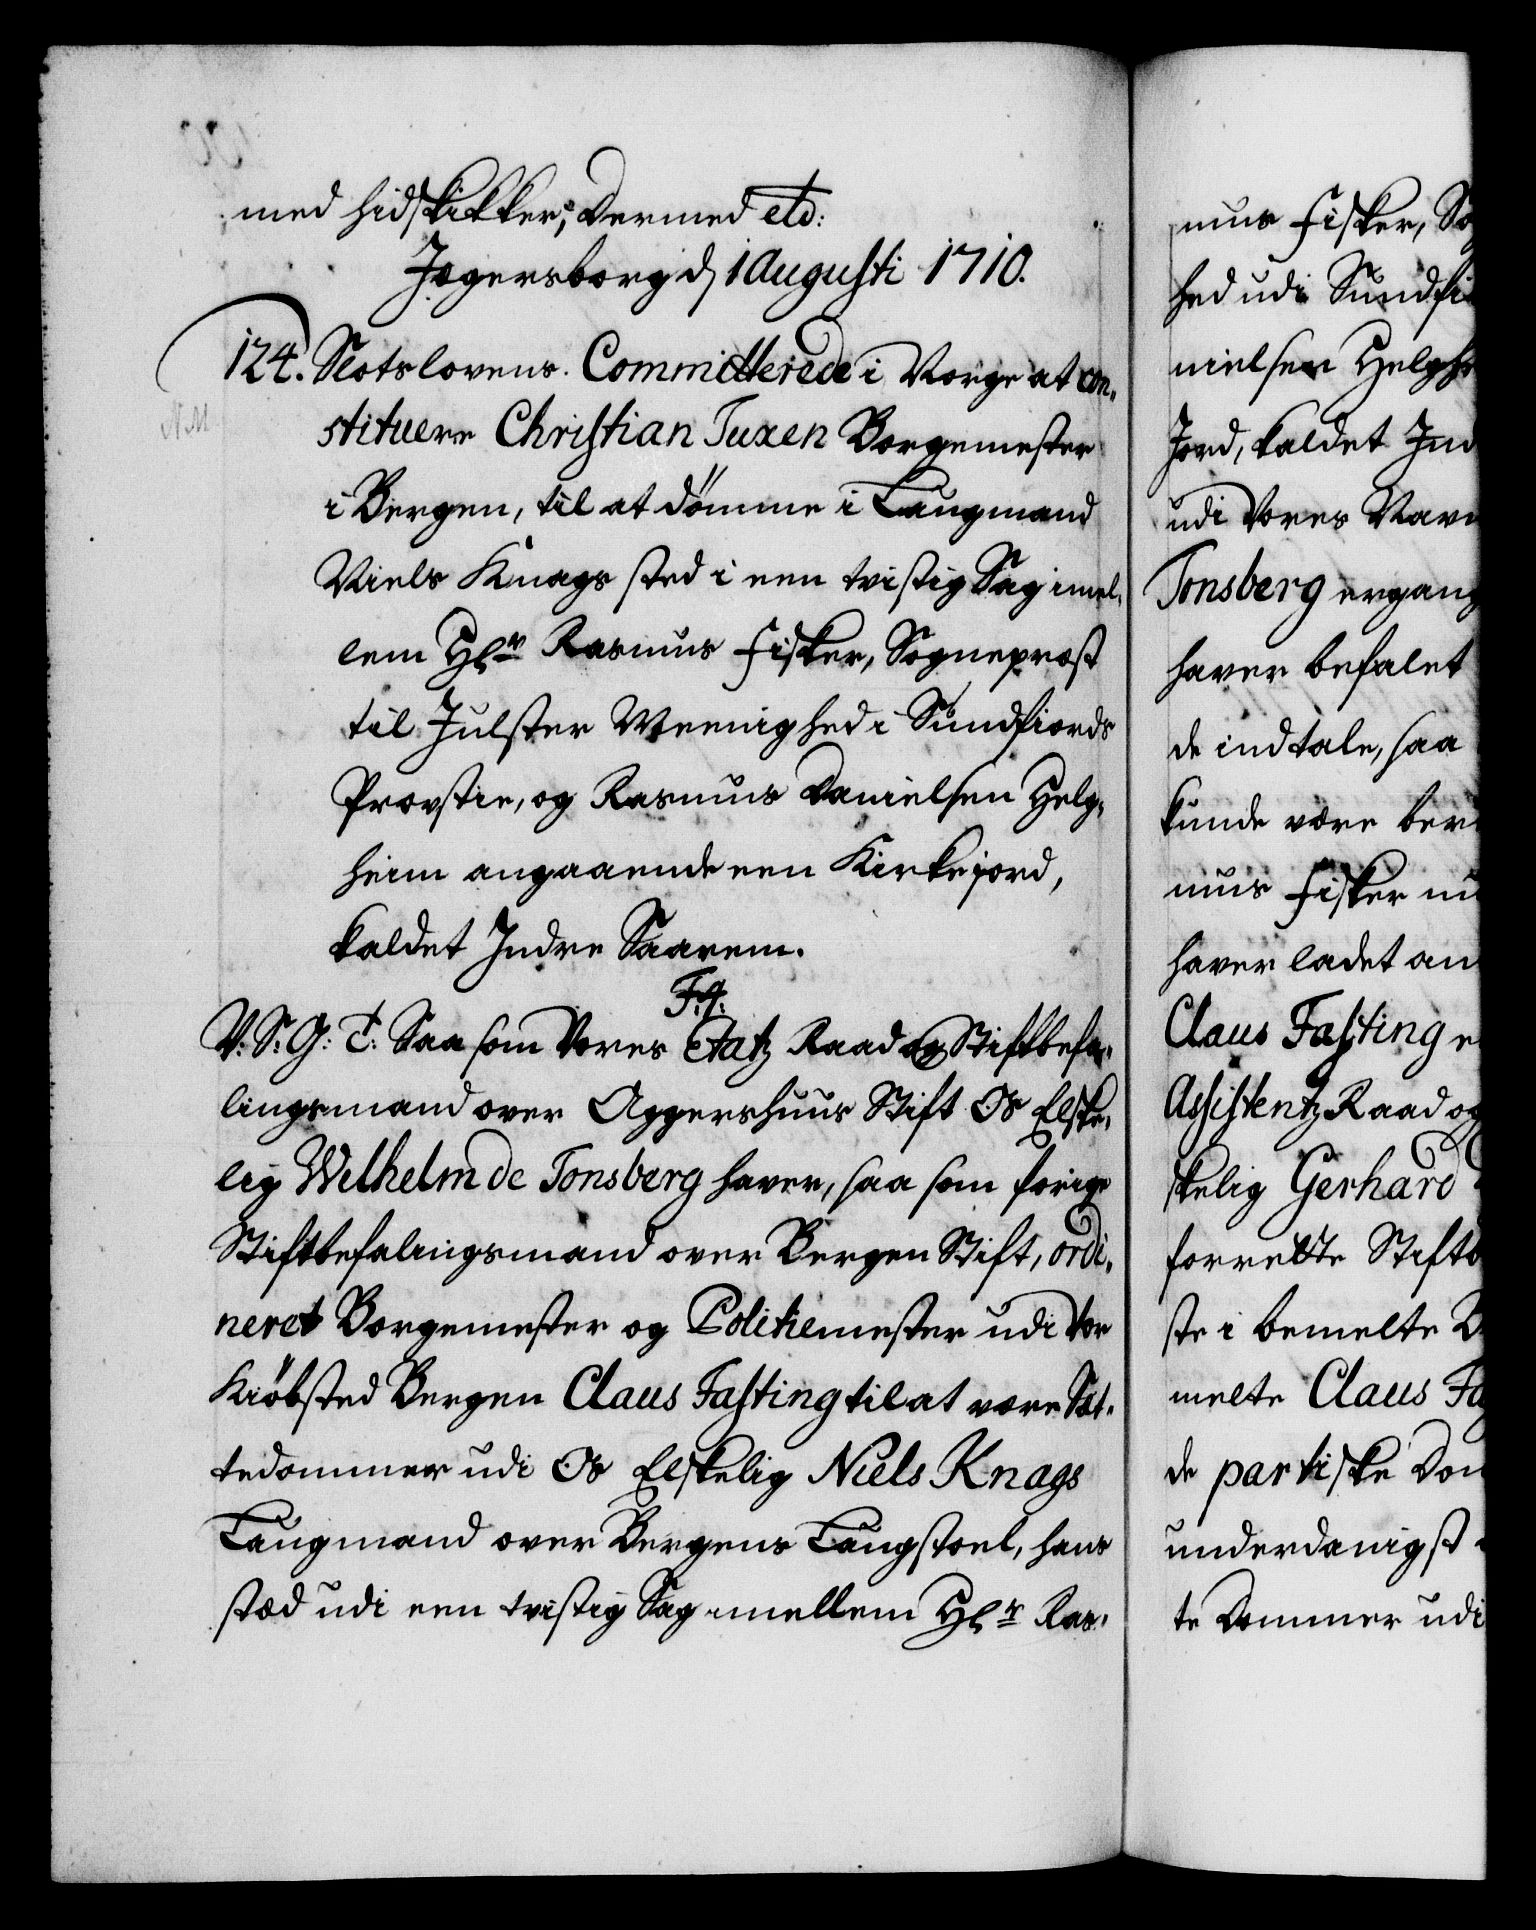 med hidskikker, Dermed etc:
Jægersborg d, 1 Augusti 1710.
124. Slotslovens Committerede i Norge at con-
NM
stituere Christian Tuxen Borgemester
i Bergen, til at dömme i Laugmand
Niels Knags sted i een tvistig Sag imel-
lem Hr Rasmus Fisker, Sognepræst
til Julster Meenighed i Sundfiords
Provstie, og Rasmus Danielsen Helg-
heim angaaende een Kirkejord,
kaldet Indre Saarem.
F. 4.
V: S: G: T: Saa som Vores Etatz Raad og Stiftbefa-
lingsmand over Aggershuus Stift Os Elske-
lig Wilhelm de Tonsberg haver, saa som forige
Stiftbefalingsmand over Bergen Stift, ordi-
neret Borgemester og Politiemester udi Vor
Kiöbsted Bergen Claus Fasting til at være Sæt-
tedommer udi Os Elskelig Niels Knags
Laugmand over Bergens Laugstoel, hans
stæd udi een tvistig Sag imellem Hr Ras-
mus Fisker, So
hed udi Sundfi
nielsen Helghe
Jord, kaldet Ind
udi Vores Navn
Tonsberg ergang
haver befalet
de indtale, saa
kunde være ber
mus Fisker nu
haver ladet an
Claus Fasting e
Assistentz Raad og
skelig Gerhard
forrette Stiftb
ste i bemelte B
melte Claus Fa
de partiske Dom
underdanigst
te Dommer udi